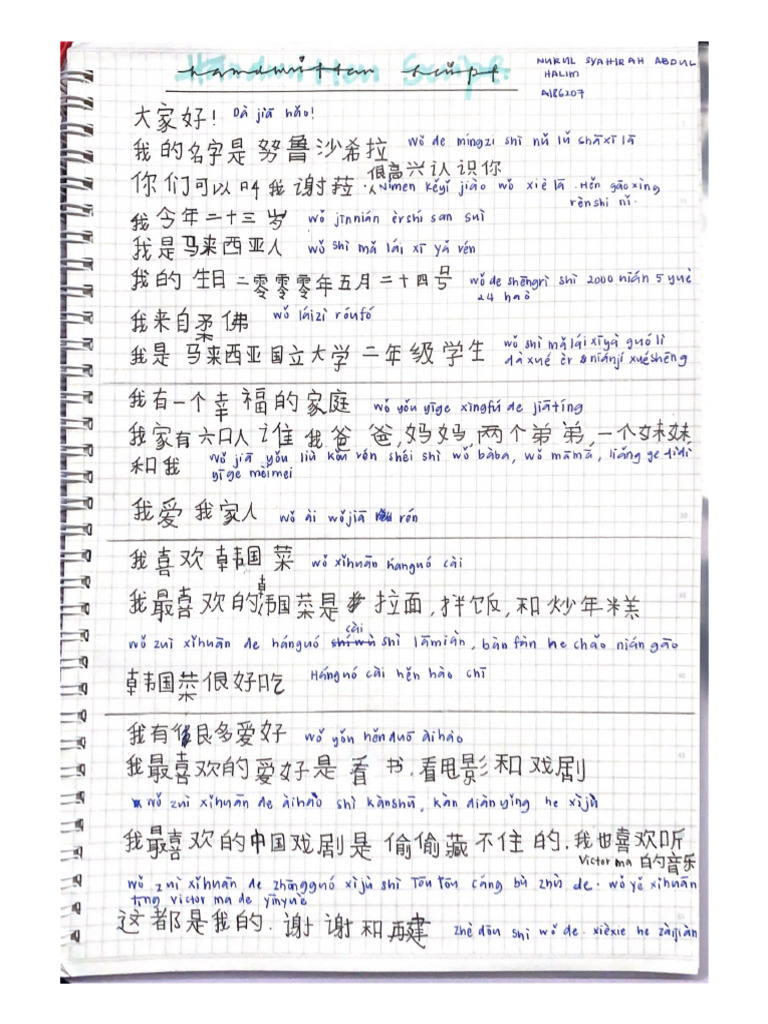 Handwritten Script.
NURUL SYAHIRAH ABDUL
HALIM
A186207
大家好! Dà jiā hǎo!
我的名字是努鲁沙希拉 wǒ de míngzi shì nǔ lǔ shāxī lā
很高兴认识你
你们可以叫我谢菈. Nǐmen kěyǐ jiào wǒ xiè lā. Hěn gāoxìng
rènshi nǐ.
我今年二十三岁 wǒ jīnnián èrshí san suì
我是马来西亚人 wǒ shì mǎ lái xī yǎ rén
我的生日二零零零年五月二十四号 wǒ de shēngrì shì 2000 nián 5 yuè
24 haò
我来自柔佛 wǒ láizì róufó
我是马来西亚国立大学二年级学生 wǒ shì mǎláixīyà guólì
dàxué èr niánjí xuéshēng
我有一个幸福的家庭 wǒ yǒu yīge xìngfú de jiātíng
我家有六口人谁我爸爸,妈妈,两个弟弟,一个妹妹
和我 wǒ jiā yǒu liù kǒu rén shéi shì wǒ bàba, wǒ māmā, liǎng ge dìdi
yīge mèimei
我爱我家人 wǒ ài wǒjiā rén
我喜欢韩国菜 wǒ xǐhuān hánguó cài
我最喜欢的韩国菜是拉面,拌饭,和炒年糕
wǒ zuì xǐhuān de hánguó cài shì lāmiàn, bàn fàn he chǎo nián gāo
韩国菜很好吃 Hánguó cài hěn hào chī
我有很多爱好 wǒ yǒu hěnduō àihào
我最喜欢的爱好是看书,看电影和戏剧
wǒ zuì xǐhuān de àihào shì kànshū, kàn diànyǐng he xìjù
我最喜欢的中国戏剧是偷偷藏不住的.我也喜欢听
Victor ma 的音乐
wǒ zuì xǐhuān de zhōngguó xìjù shì Tōu tōu cáng bù zhù de. wǒ yě xihuān
tīng victor ma de yīnyuè
这都是我的.谢谢和再建 zhè dōu shì wǒ de. xièxie he zàijiàn